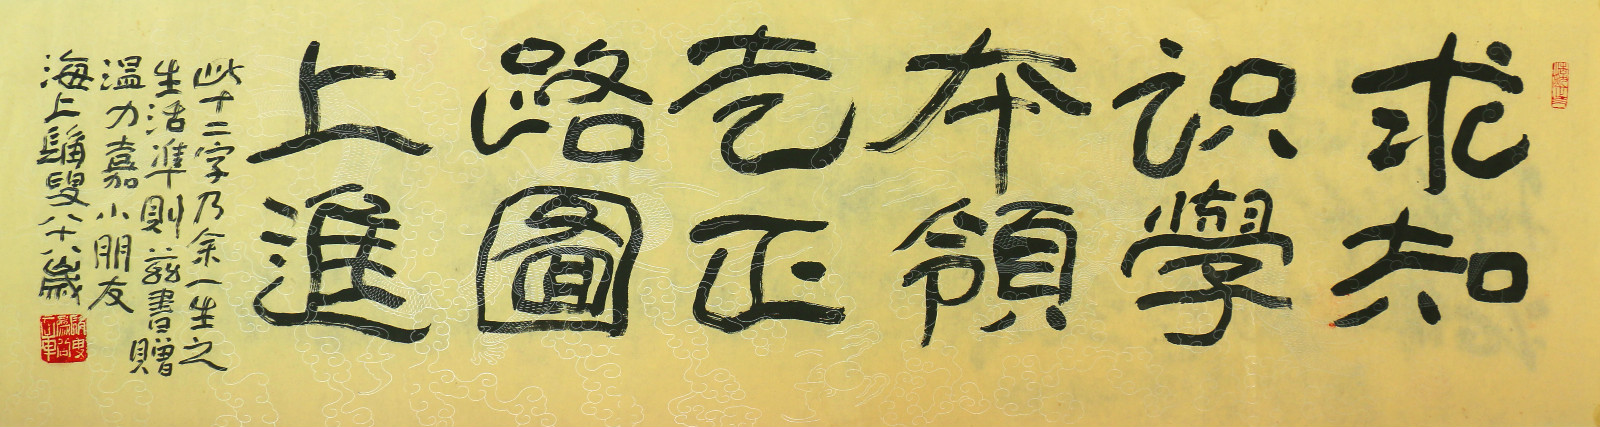 求知
识學
本領
走正
路圖
上進
此十二字乃余一生之
生活準則茲書贈
温力嘉小朋友
海上叟八十八歲